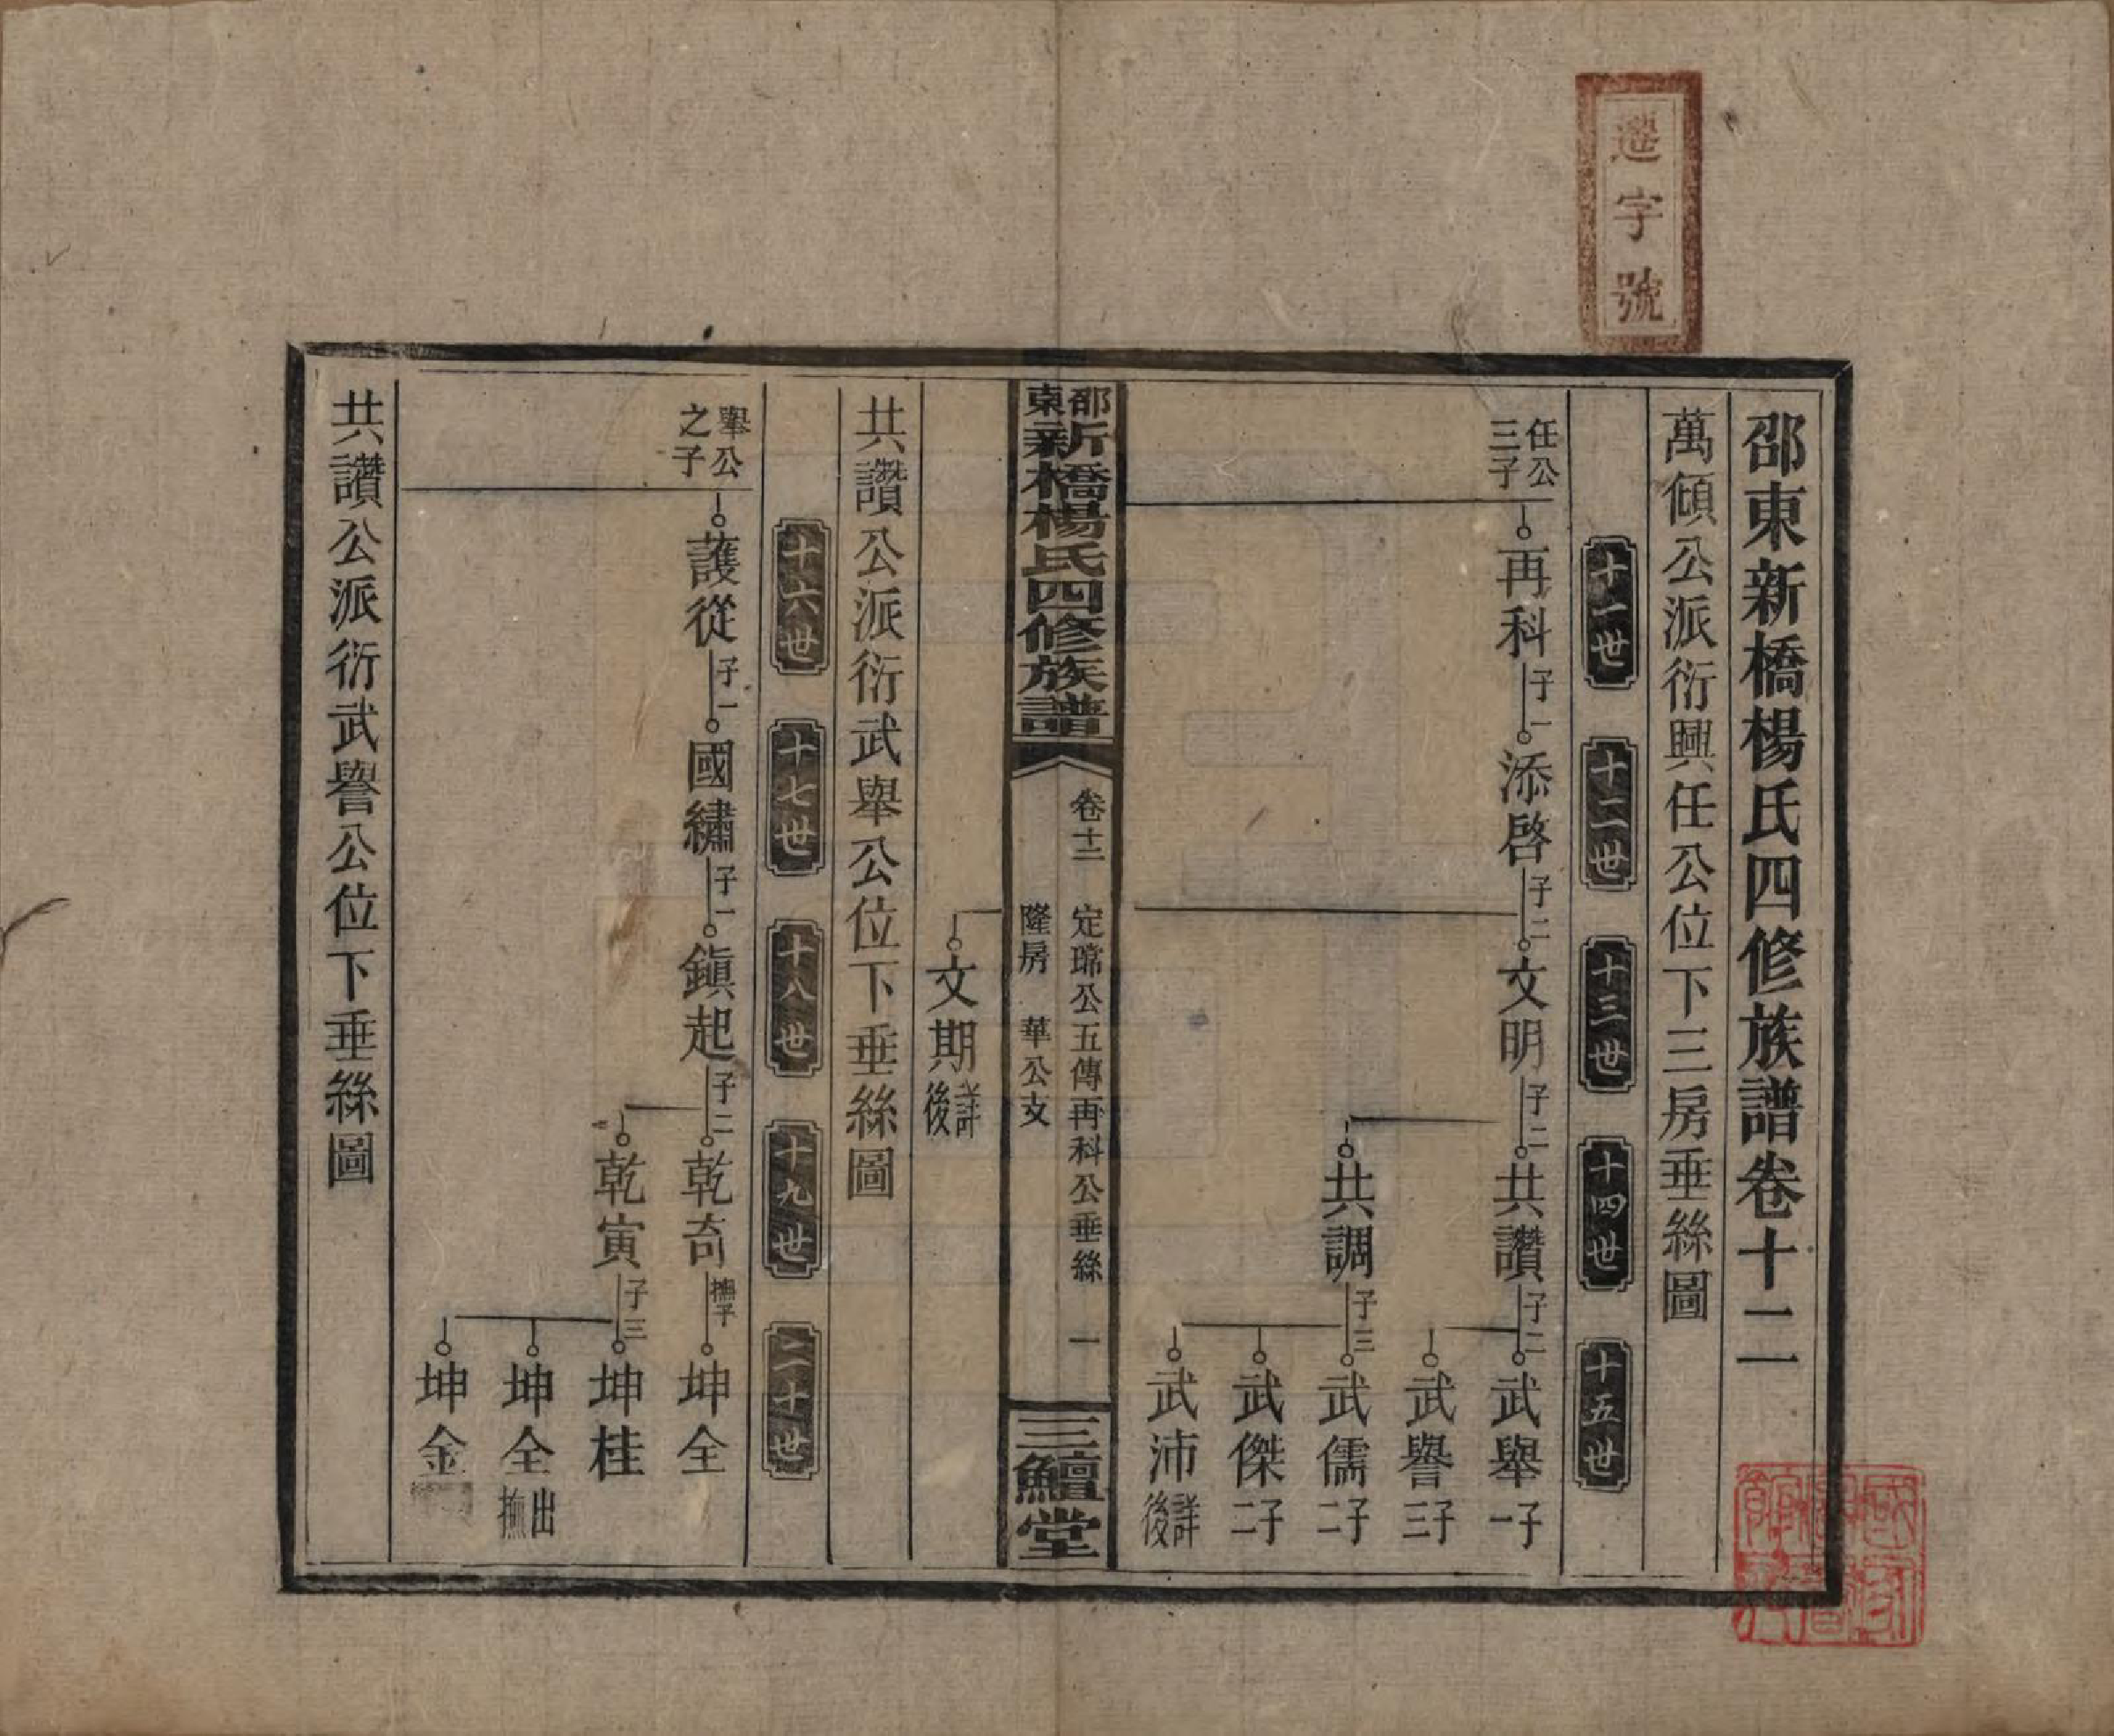 遷字號
邵東新橋楊氏四修族譜卷十二
萬傾公派衍興任公位下三房垂絲圖
十一世 十二世 十三世 十四世 十五世
任公三子
再科 子一 添啓 子二 文明 子二 共讚 子二 武舉 子一
武譽 子三
共調 子三 武儒 子二
武傑 子二
武沛 詳後
邵東新橋楊氏四修族譜
卷十二 定瑺公五傳再科公垂絲 一
隆房 華公支
三鱣堂
文期 詳後
共讚公派衍武舉公位下垂絲圖
十六世 十七世 十八世 十九世 二十世
舉公之子
護從 子一 國繡 子一 鎭起 子二 乾奇 撫子 坤全
乾寅 子三 坤桂
坤全 出撫
坤金
共讚公派衍武譽公位下垂絲圖